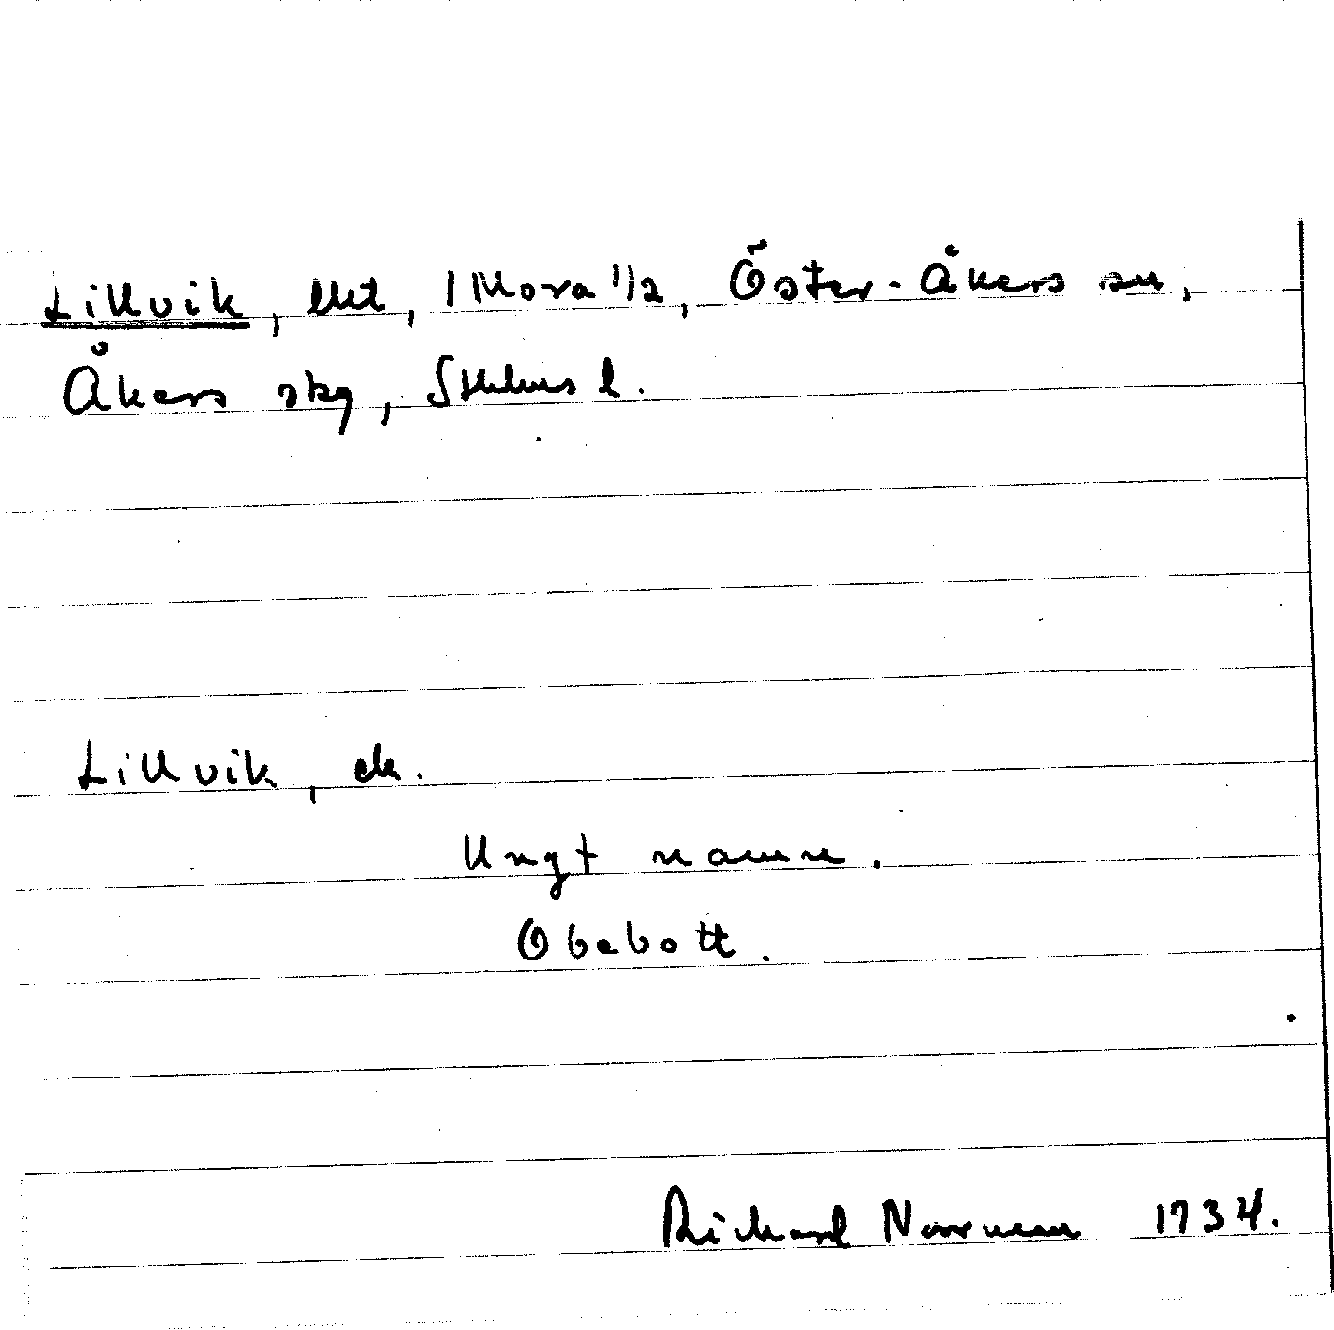 Lillvik, lht, 1 Mora 1/2, Öster-Åkers sn,
Åkers skg, Sthlms l.
Lillvik, ek.
Ungt namn.
Obebott.
Richard Norrman 1934.